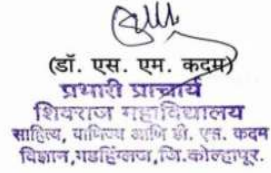 (डॉ. एस. एम. कदम)
प्रभारी प्राचार्य
शिवराज महाविद्यालय
साहित्य, वाणिज्य आणि डी. एस. कदम
विज्ञान,गडहिंग्लज,जि.कोल्हापूर.